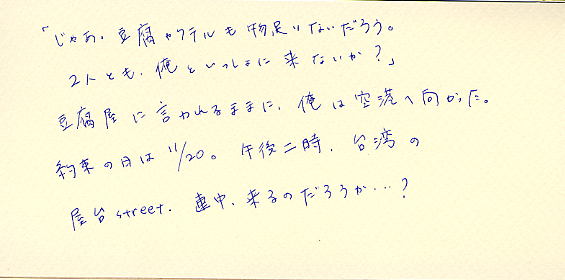 「じゃあ、豆腐カクテルも物足りないだろう。
2人とも、俺といっしょに来ないか？」
豆腐屋に言われるままに、俺は空港へ向かった。
約束の日は11/20。午後二時、台湾の
屋台street. 連中、来るのだろうか…？